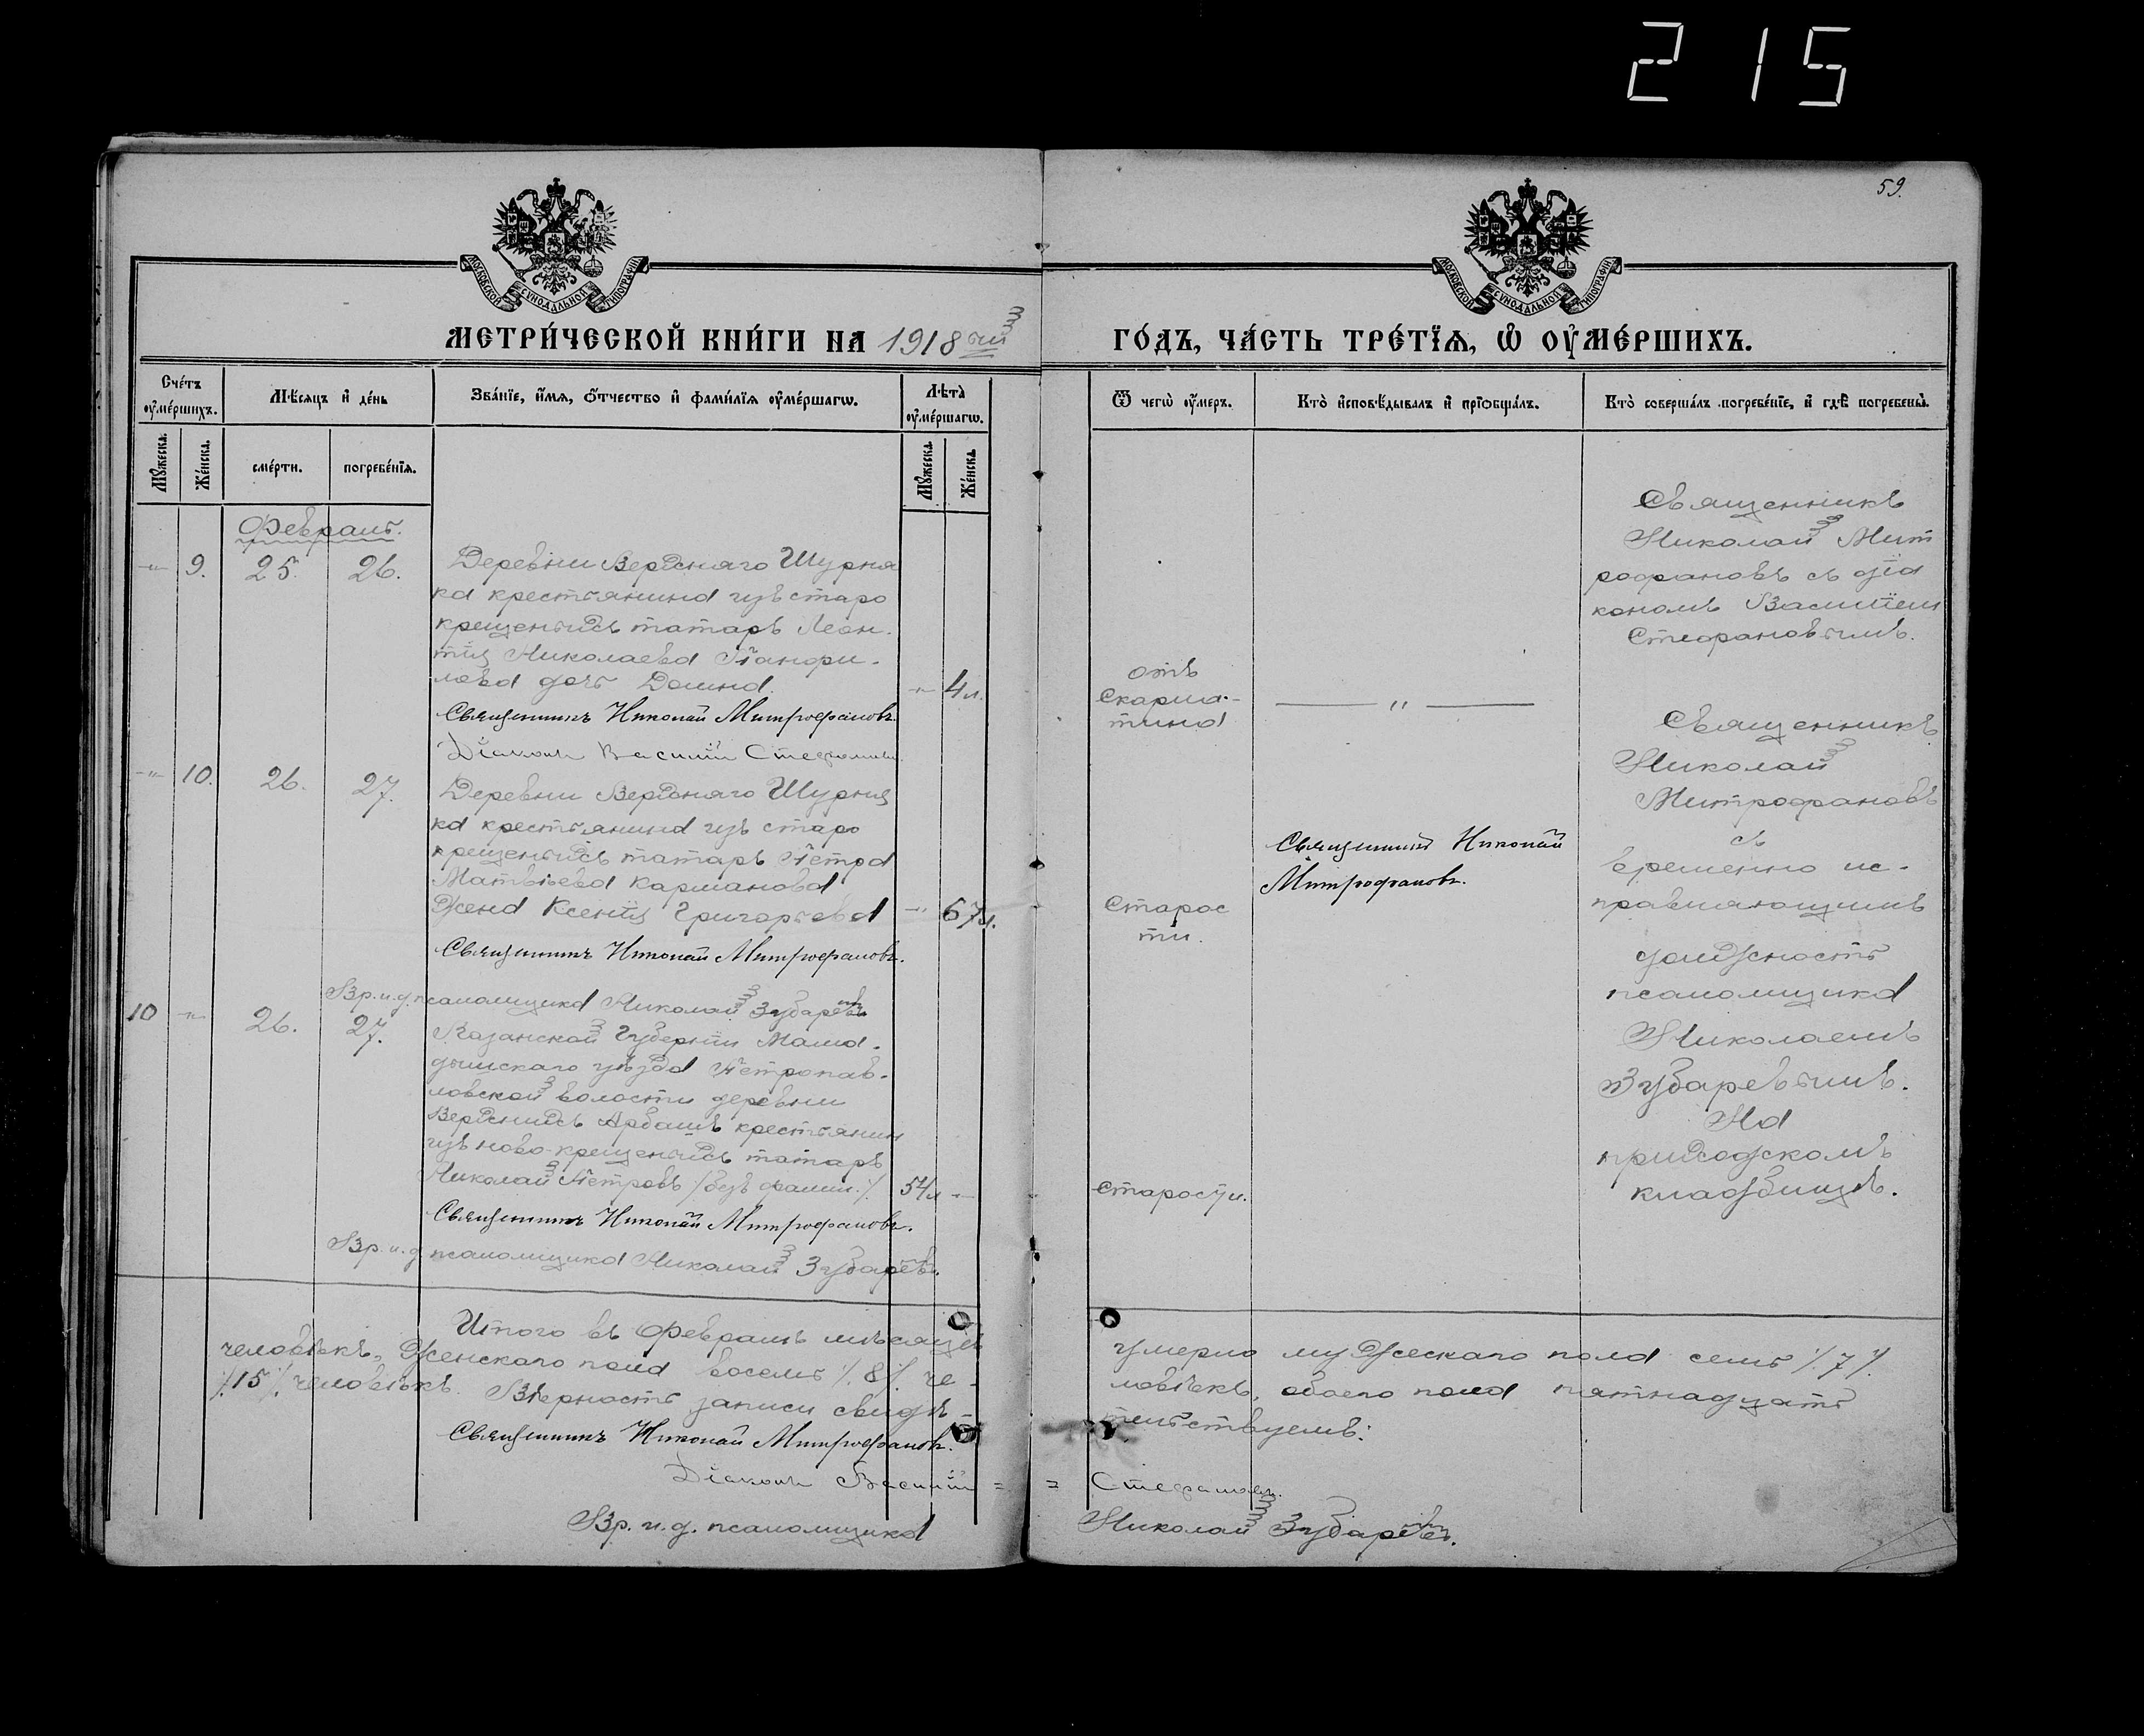 215
59.
МОСКОВСКОЙ СѴНОДАЛЬНОЙ ТИПОГРАФІИ
МОСКОВСКОЙ СѴНОДАЛЬНОЙ ТИПОГРАФІИ
МЕТРИ́ЧЕСКОЙ КНИ́ГИ НА 1918 ый
ГО́ДЪ, ЧА́СТЬ ТРЕ́ТЇѦ, Ѡ҆ ОУ҆МЕ́РШИХЪ.
Сче́тъ оу҆ме́ршихъ.
Мѣ́сѧцъ и҆ де́нь
Зва́нїе, и҆́мѧ, ѻ҆́тчество и҆ фами́лїѧ оу҆ме́ршагѡ.
Лѣ̀та оу҆ме́ршагѡ.
Мꙋ́жеска.
Же́нска.
сме́рти.
погребе́нїѧ.
Мꙋ́жеска
Же́нска
Ѿ чегѡ̀ оу҆́меръ.
Кто̀ и҆сповѣ́дывалъ и҆ прїѡбща́лъ.
Кто̀ соверша́лъ погребе́нїе, и҆ гдѣ̀ погребены̀.
Февраль.
-"- 9. 25. 26.
Деревни Верхняго Шурня
ка крестьянина изъ старо
крещеныхъ татаръ Леон-
тія Николаева Панфи-
лова дочь Домна. -"- 4 л.
Священникъ Николай Митрофановъ.
Діаконъ Василій Стефановъ
отъ
Скарла-
тина
— " —
Священникъ
Николай Мит
рофановъ съ діа
кономъ Василіем
Стефановымъ.
-"- 10. 26. 27.
Деревни Верхняго Шурня
ка крестьянина изъ старо
крещеныхъ татаръ Петра
Матвѣева Карманова
жена Ксенія Григорьева -"- 67 л.
Священникъ Николай Митрофановъ.
Вр. и. д. псаломщика Николай Зубаревъ
Старос
ти.
Священникъ Николай
Митрофановъ.
Священникъ
Николай
Митрофановъ
съ
временно ис-
правляющимъ
должность
псаломщика
Николаемъ
Зубаревымъ.
На
приходскомъ
кладбищѣ.
10 -"- 26. 27.
Казанской Губерніи Мама-
дышскаго уѣзда Петропав-
ловской волости деревни
Верхнихъ Арбашъ крестьянин
изъ ново-крещеныхъ татаръ
Николай Петровъ /безъ фамил./. 54 л -"-
Священникъ Николай Митрофановъ.
Вр. и. д. псаломщика Николай Зубаревъ.
старости.
Итого въ Февралѣ мѣсяцѣ умерло мужескаго пола семь /.7./
человѣкъ, женскаго пола восемь /.8./. че-ловѣкъ, обоего пола пятнадцать
/.15./ человѣкъ. Вѣрность записи свидѣ-тельствуемъ:
Священникъ Николай Митрофановъ.
Діаконъ Василій = = Стефановъ.
Вр. и. д. псаломщика Николай Зубаревъ.